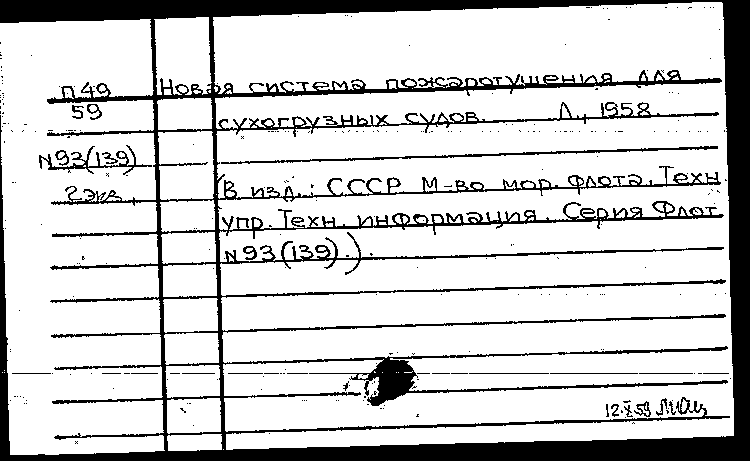 П49 Новая система пожаротушения для
59
сухогрузных судов. Л., 1958.
N93(139)
2 экз.
(В изд.: СССР М-во мор. флота. Техн.
упр. Техн. информация. Серия Флот
N93(139).).
12.X.59